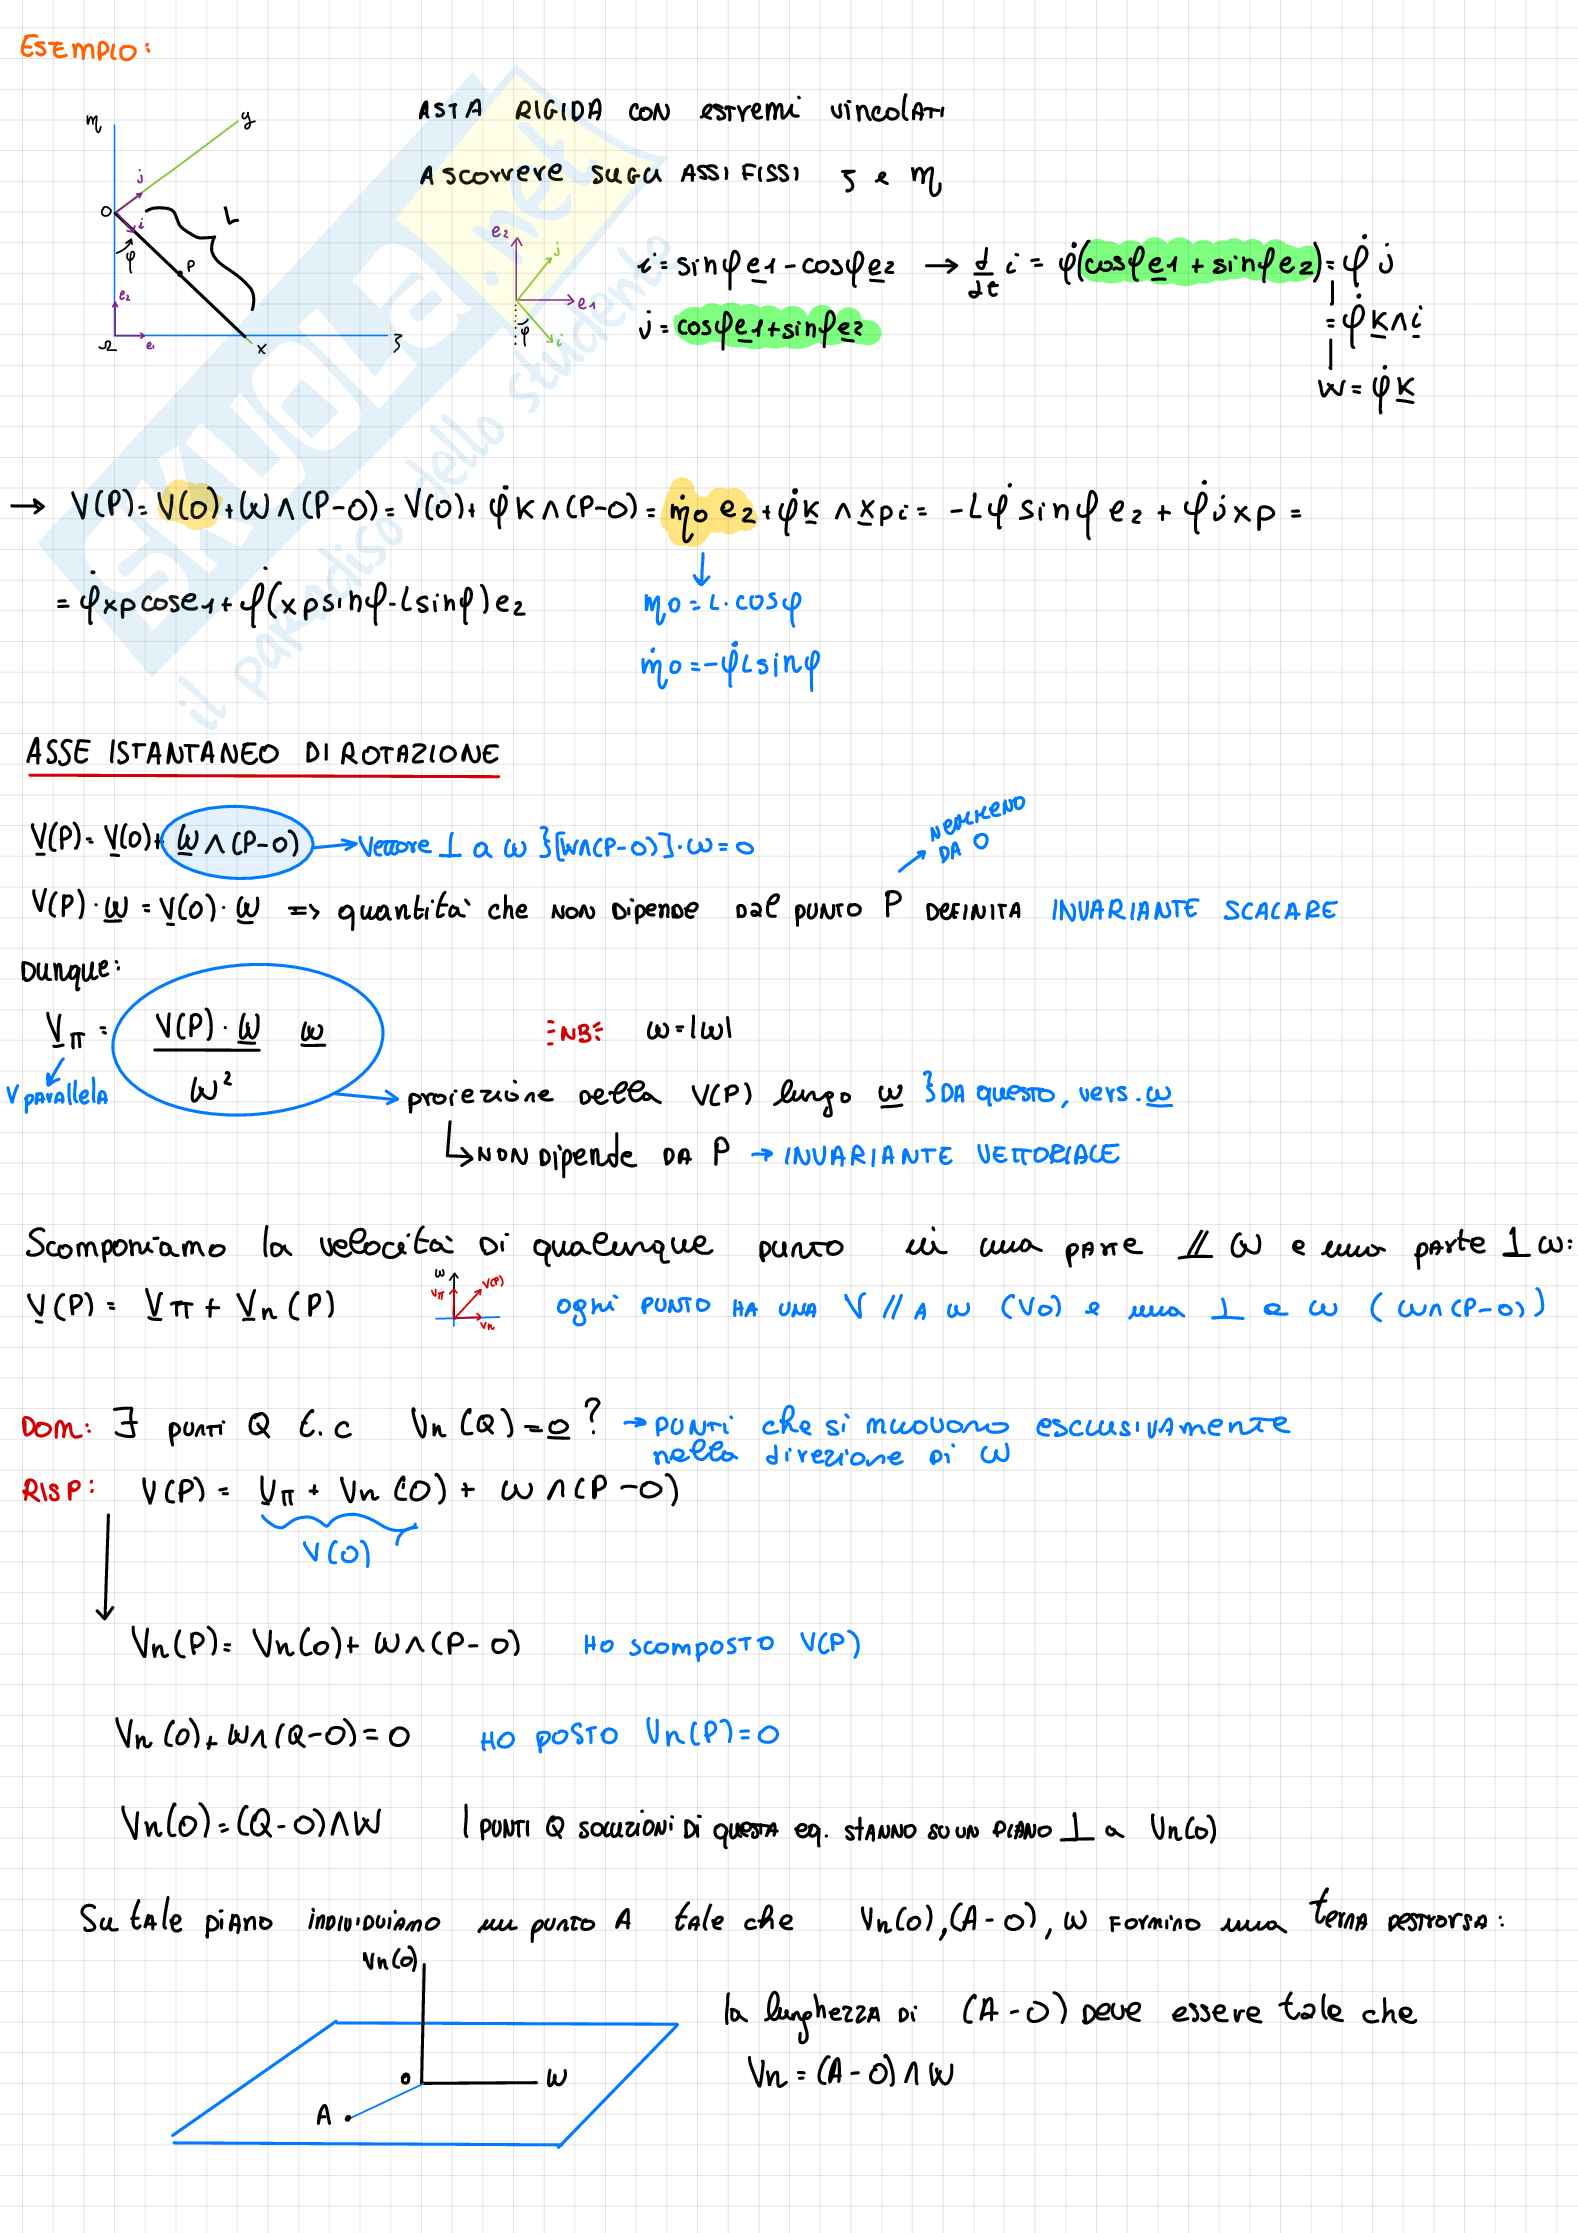 ESEMPIO:
ASTA RIGIDA CON estremi vincolati
A scorrere sugli ASSI FISSI ξ e η
η
y
j
O
i
L
φ
P
e2
Ω
e1
x
ξ
e2
j
e1
φ
i
i = sinφ e1 - cosφ e2 → d/dt i = φ̇(cosφ e1 + sinφ e2) = φ̇ j
j = cosφ e1 + sinφ e2
= φ̇ k ∧ i
w = φ̇ k
→ V(P) = V(O) + ω ∧ (P-O) = V(O) + φ̇ k ∧ (P-O) = η̇o e2 + φ̇ k ∧ xp i = -Lφ̇ sinφ e2 + φ̇ j xp =
= φ̇ xp cos e1 + φ̇(xp sinφ - L sinφ) e2
ηo = L · cosφ
η̇o = -φ̇ L sinφ
ASSE ISTANTANEO DI ROTAZIONE
V(P) = V(O) + ω ∧ (P-O) → Vettore ⊥ a ω } [ω∧(P-O)] · ω = 0
NEMMENO DA O
V(P) · ω = V(O) · ω => quantita' che NON Dipende dal PUNTO P DEFINITA INVARIANTE SCALARE
Dunque:
Vπ = V(P) · ω / ω² ω
NB ω = |ω|
V parallela
proiezione della V(P) lungo ω } DA questo, vers. ω
↳ NON Dipende DA P → INVARIANTE VETTORIALE
Scomponiamo la velocita' di qualunque punto in una parte // ω e una parte ⊥ ω:
V(P) = Vπ + Vn(P)
ω
Vπ
V(P)
Vn
ogni PUNTO HA UNA V // A ω (VO) e una ⊥ a ω (ω∧(P-O))
DOM: ∃ punti Q t.c Vn(Q) = 0? → PUNTI che si muovono esclusivamente
nella direzione di ω
RISP: V(P) = Vπ + Vn(O) + ω ∧ (P-O)
V(O)
Vn(P) = Vn(O) + ω∧(P-O) HO scomposto V(P)
Vn(O) + ω∧(Q-O) = 0 HO POSTO Vn(P) = 0
Vn(O) = (Q-O) ∧ W I PUNTI Q soluzioni Di questa eq. STANNO SU UN PIANO ⊥ a Vn(O)
Su tale piano INDIVIDUIAMO un punto A tale che Vn(O), (A-O), ω FORMINO una terna DESTRORSA:
Vn(O)
O
W
A
la lunghezza Di (A-O) Deve essere tale che
Vn = (A-O) ∧ W
SKUOLA.net
il paradiso dello studente